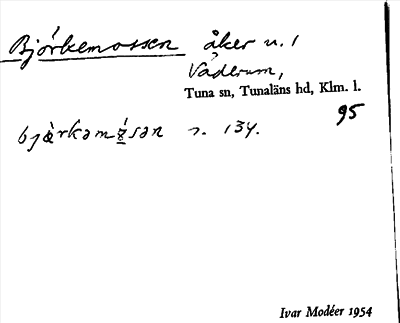 Björkemossen åker u. 1
Väderum,
Tuna sn, Tunaläns hd, Klm. l.
95
134.
Ivar Modéer 1954